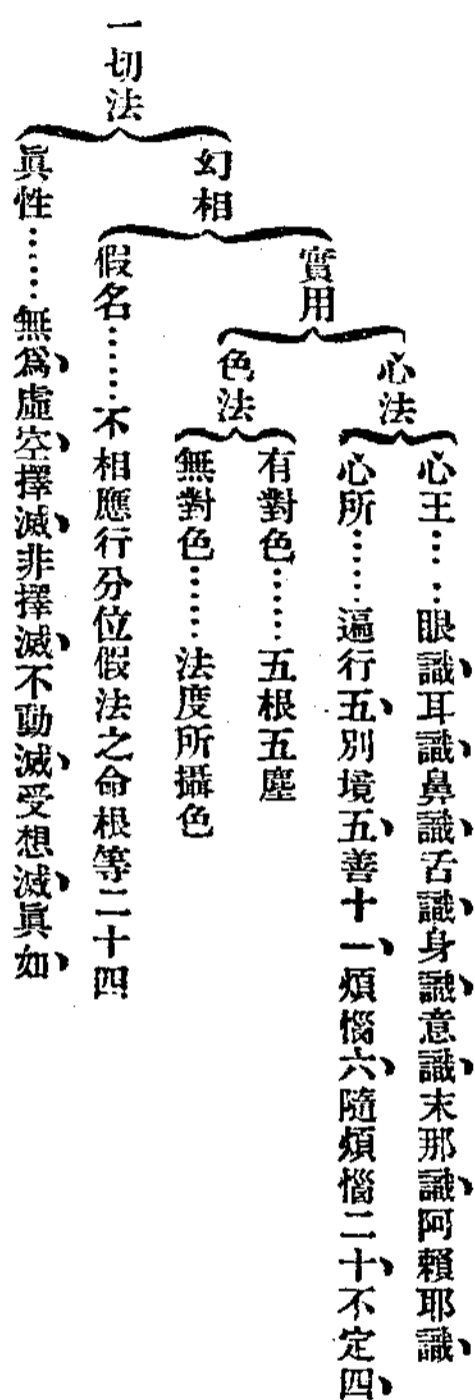 一切法
幻相
實用
心法
心王……眼識、耳識、鼻識、舌識、身識、意識、末那識、阿賴耶識、
心所……遍行五、別境五、善十一、煩惱六、隨煩惱二十、不定四、
色法
有對色……五根五塵
無對色……法度所攝色
假名……不相應行分位假法之命根等二十四
眞性……無爲、虛空、擇滅、非擇滅、不動滅、受想滅、眞如、